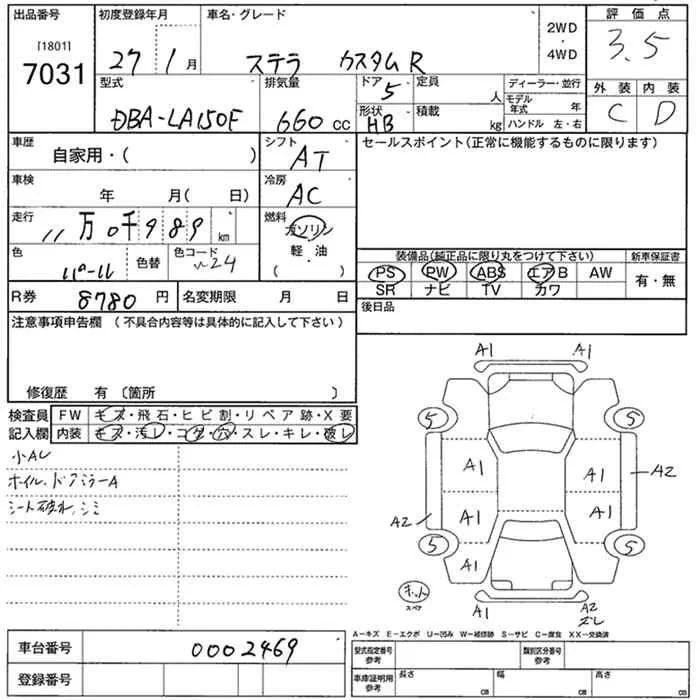 出品番号
[1801]
7031
初度登録年月
27 1 月
車名・グレード
ステラ カスタムR
2WD
・
4WD
評価点
3.5
外装 内装
C D
型式
DBA-LA150F
排気量
660 cc
ドア
5
形状
HB
定員
人
積載
kg
ディーラー・並行
モデル年式 年
ハンドル 左・右
車歴
自家用・( )
シフト
AT
セールスポイント(正常に機能するものに限ります)
車検
年 月( 日)
冷房
AC
走行
11万0千989 km
燃料
ガソリン
軽・油
( )
色
パール
色替
色コード
W24
装備品(純正品に限り丸をつけて下さい)
PS PW ABS エアB AW
SR ナビ TV カワ
新車保証書
有・無
R券
8780 円
名変期限 月 日
後日品
注意事項申告欄 (不具合内容等は具体的に記入して下さい)
修復歴 有 〔箇所 〕
検査員
記入欄
FW キズ・飛石・ヒビ割・リペア跡・X要
内装 キズ・汚レ・コゲ・穴・スレ・キレ・破レ
小AU
ホイル、ドアミラーA
シート破れ、シミ
A1 A1
5 5
A1 A1 A2
A1 A1
A2
5 5
A1
ホット
スペア
A1 A2
ズレ
A-キズ E-エクボ U-凹み W-補修跡 S-サビ C-腐食 XX-交換済
車台番号
0002469
登録番号
型式指定番号
参考
類別区分番号
参考
車庫証明用
参考
長さ cm
幅 cm
高さ cm